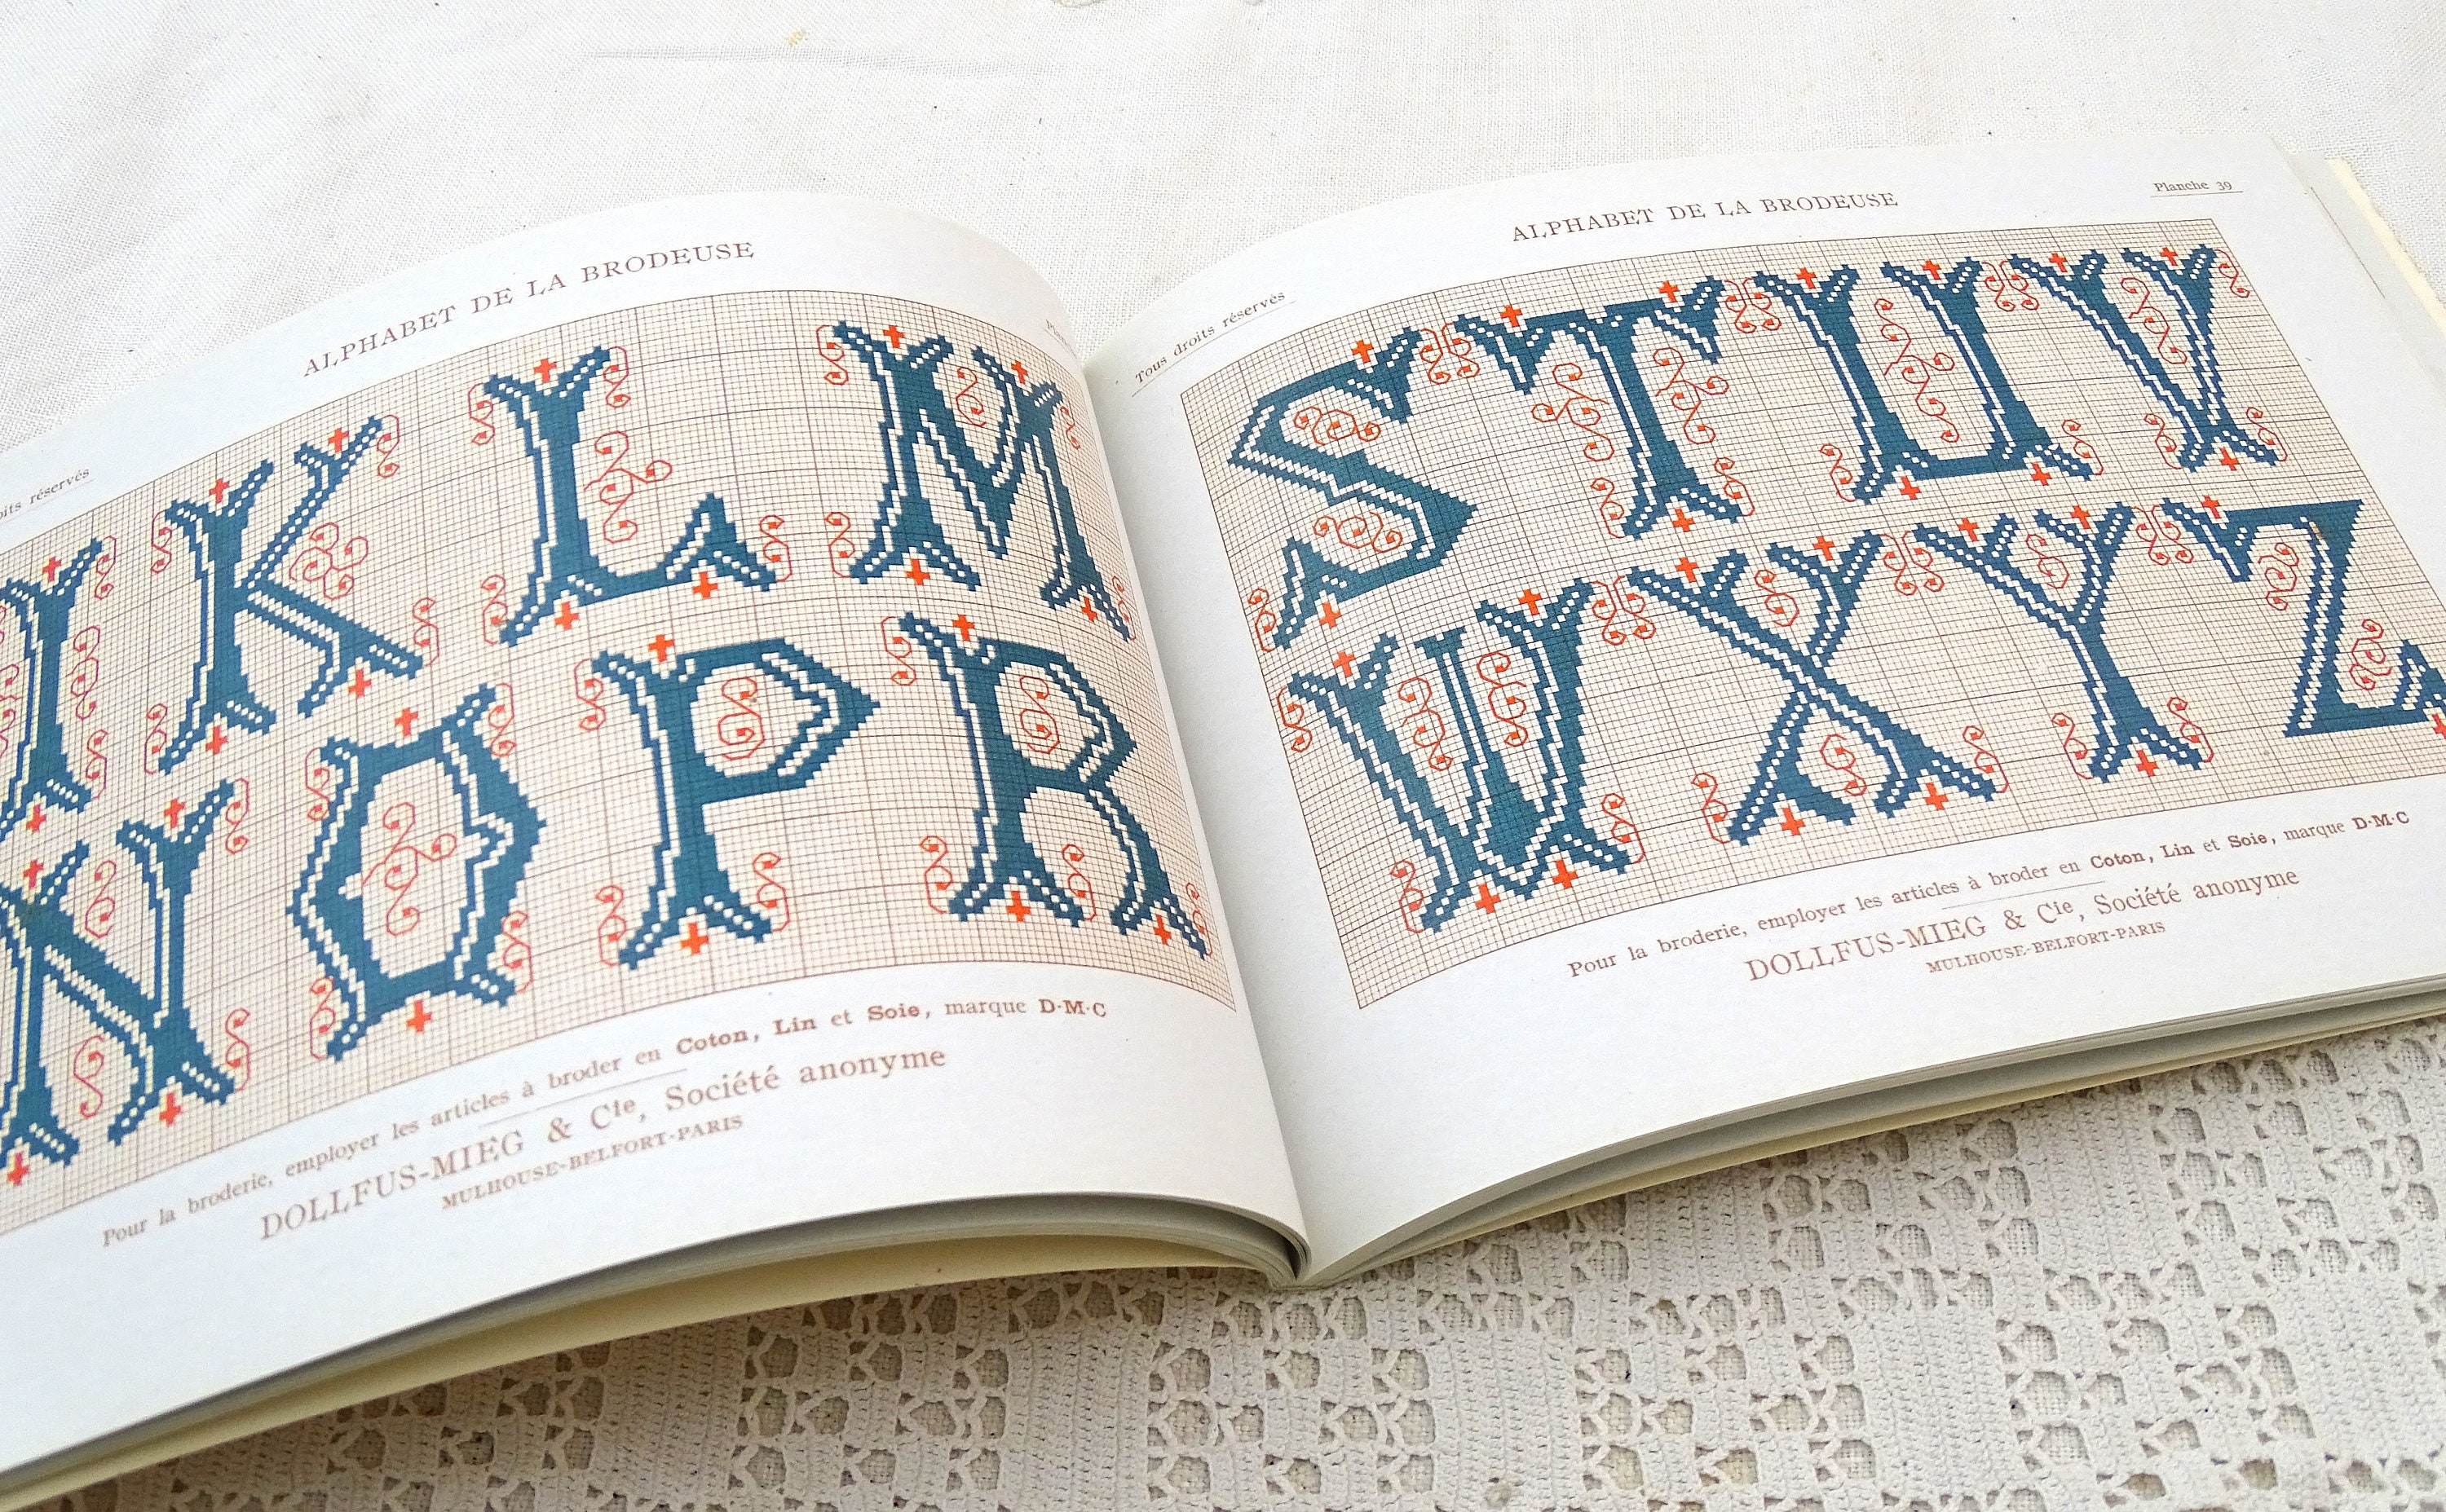 ALPHABET DE LA BRODEUSE
réservés
I K L M
N O P R
Pour la broderie, employer les articles à broder en Coton, Lin et Soie, marque D·M·C
DOLLFUS-MIEG & Cie, Société anonyme
MULHOUSE-BELFORT-PARIS
Planche 39
ALPHABET DE LA BRODEUSE
Tous droits réservés
S T U V
W X Y Z
Pour la broderie, employer les articles à broder en Coton, Lin et Soie, marque D·M·C
DOLLFUS-MIEG & Cie, Société anonyme
MULHOUSE-BELFORT-PARIS